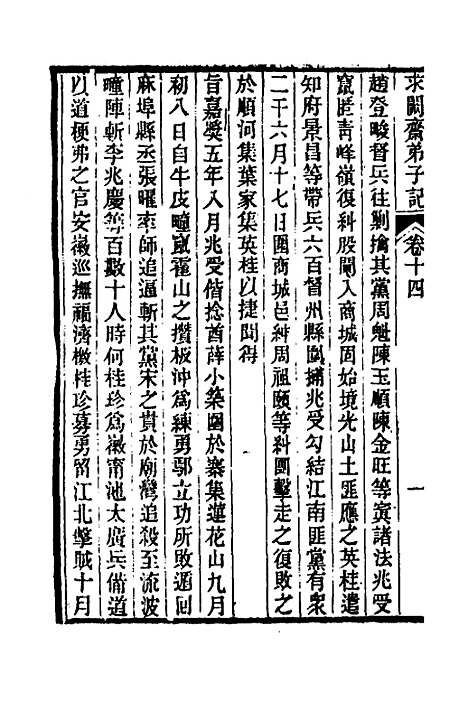 求闕齋弟子記 卷十四 一
趙登畯督兵往剿擒其黨周魁陳玉順陳金旺等寘諸法兆受
竄匿青峰嶺復科股闖入商城固始境光山土匪應之英桂遣
知府景昌等帶兵六百督州縣圍捕兆受勾結江南匪黨有衆
二千六月十七日圍商城邑紳周祖頤等糾團擊走之復敗之
於順河集葉家集英桂以捷聞得
旨嘉獎五年八月兆受偕捻酋薛小築圍於寨集蓮花山九月
初八日自牛皮疃竄霍山之攢板沖爲練勇鄢立功所敗遁回
麻埠縣丞張曜率師追逼斬其黨宋之貴於廟灣追殺至流波
疃陣斬李兆慶等百數十人時何桂珍爲徽甯池太廣兵備道
以道梗弗之官安徽巡撫福濟檄桂珍募勇留江北擊賊十月